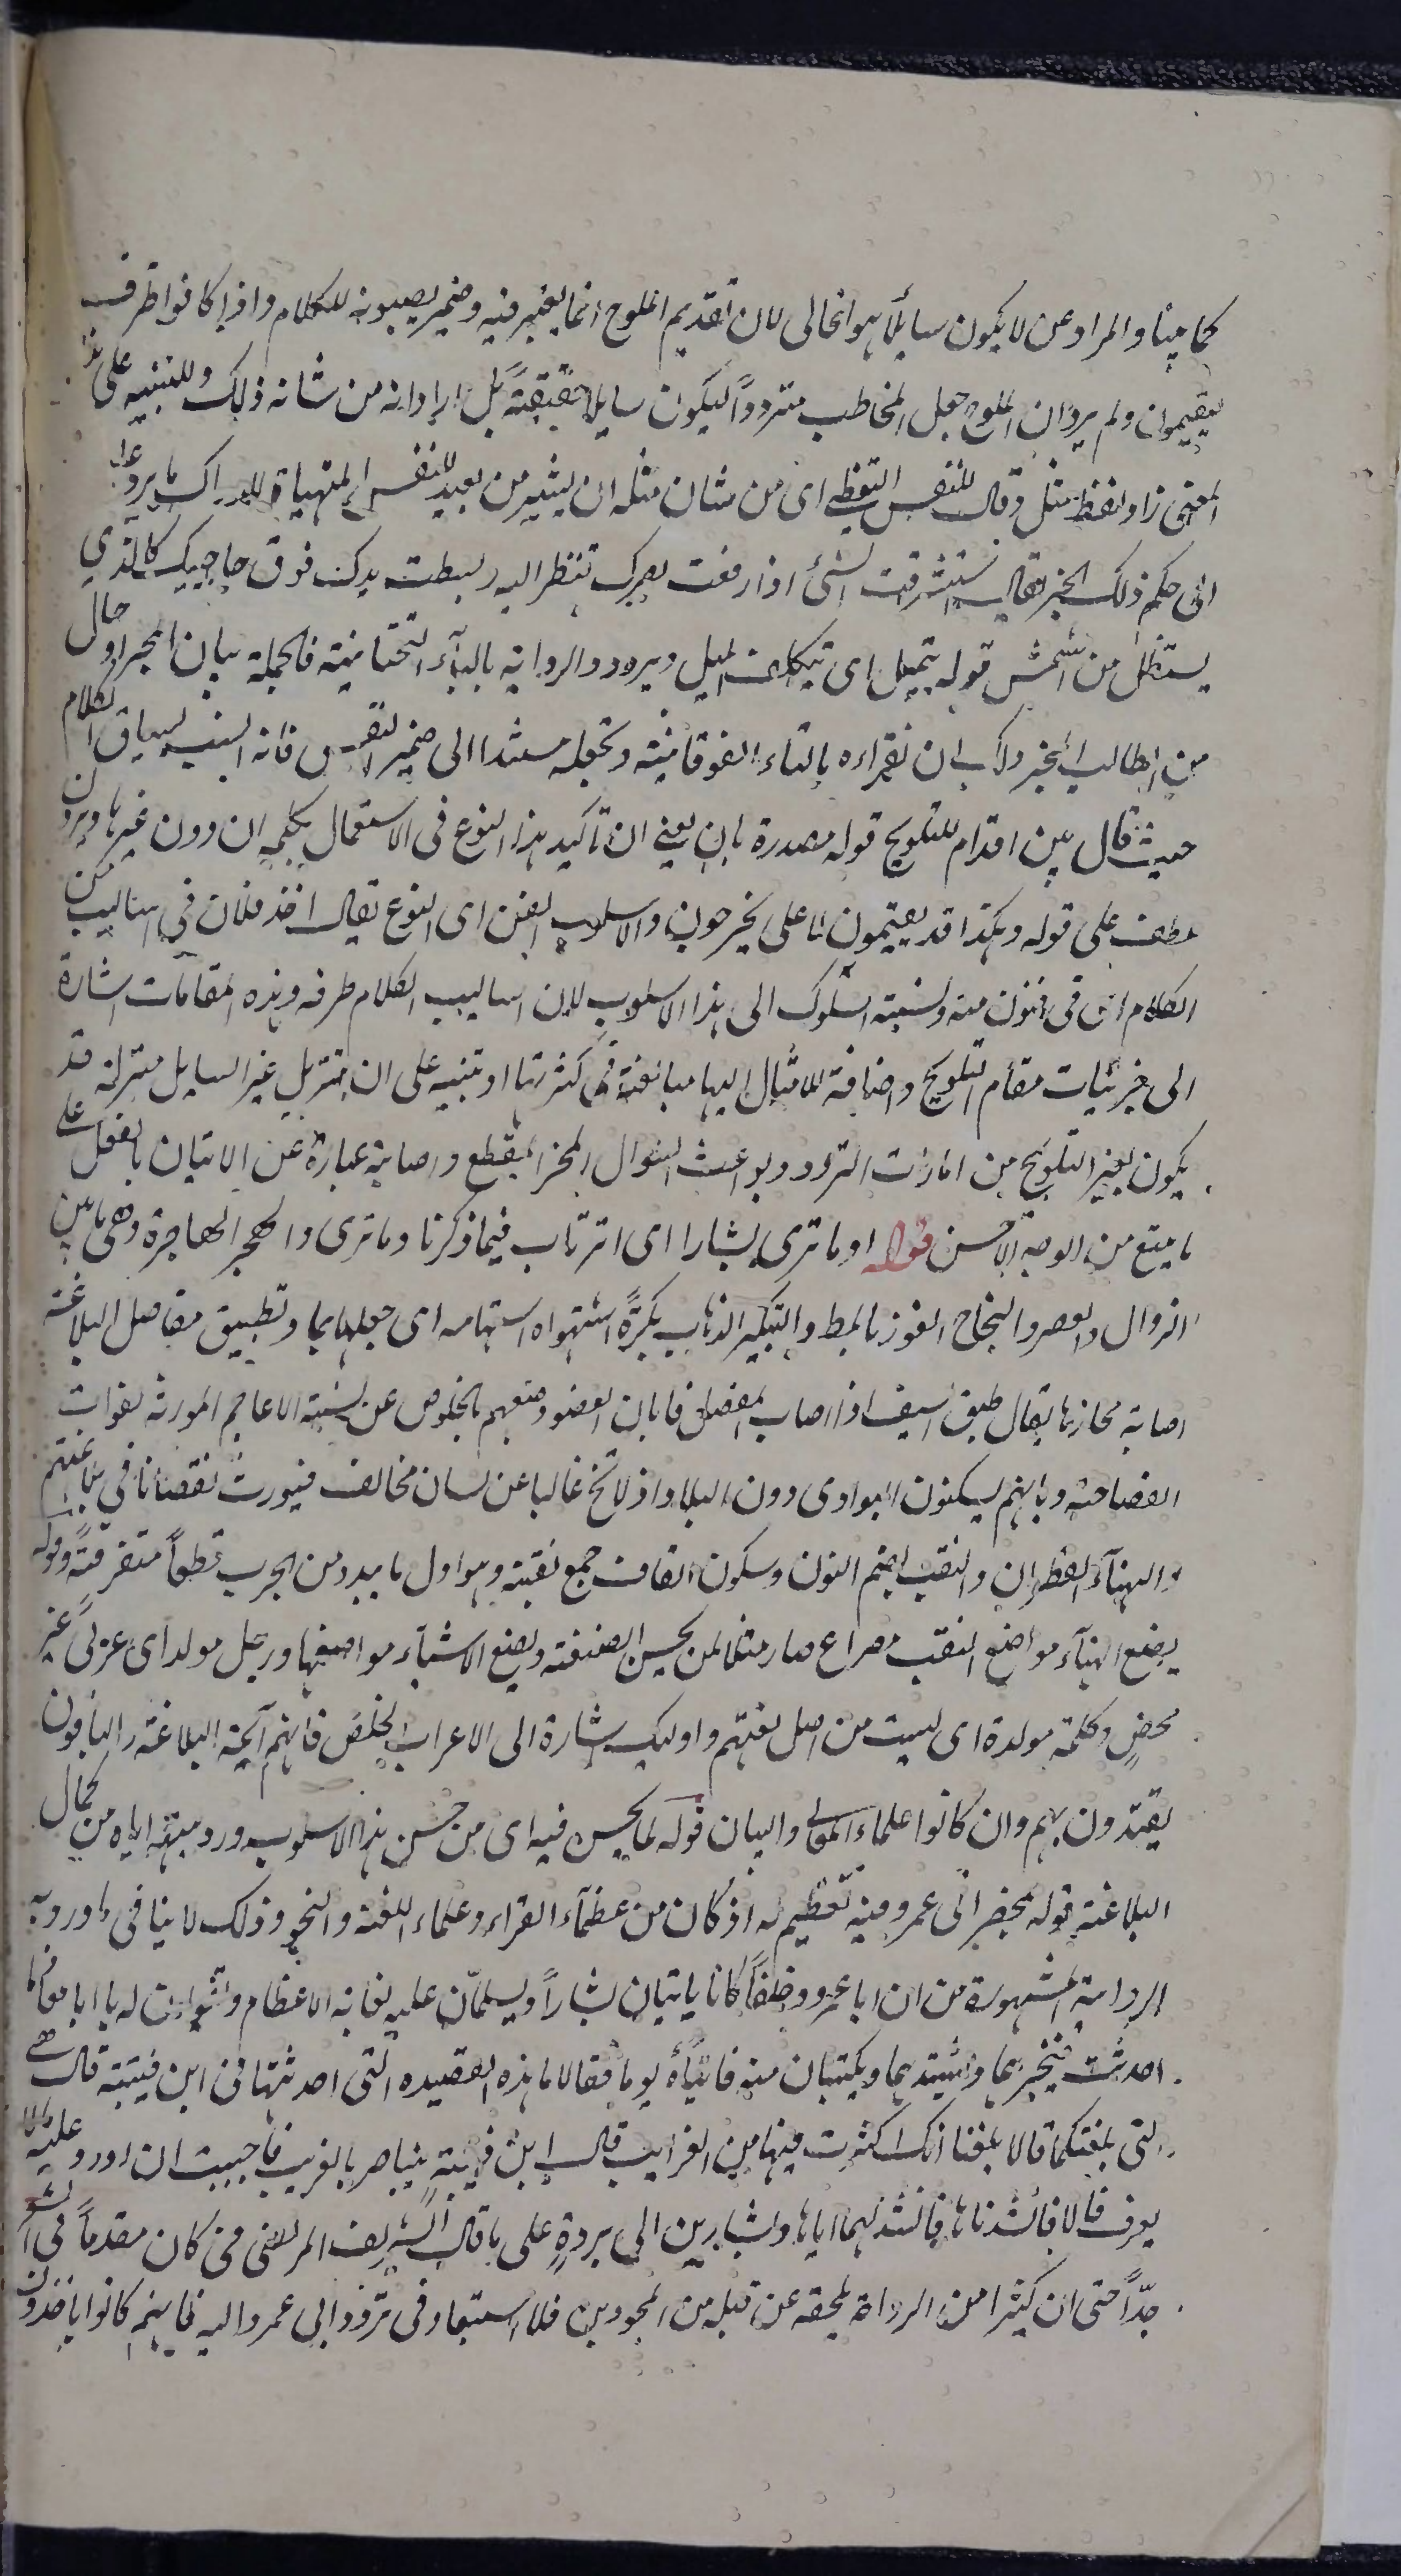 كما بينا والمراد عن لا يكون سايلا هو الخالى لان تقديم الملوح انما يعتبر فيه وضمير يصيبونه للكلام واذا كانوا ظرف
لیقيمون ولم يرد ان الملوح جعل المخاطب مترددا ليكون سايلا حقيقة بل اراد انه من شانه ذلك وللتنبيه على هذا
المعنى زاد لفظ مثل وقال للنفس اليقظى اى من شان مثله ان يشير من بعيد للنفس المتهياة للادراك ما يرد عليها
الى حكم ذلك الخبر يقال استشرفت الشئ اذا رفعت بصرك تنظر اليه وبسطت يدك فوق حاجبيك كالذي
يستظل من الشمس قوله يتميل اى يتكلف الميل ويردد والرواية باليآء التحتانية فالجملة بيان لمجراو حال
من الطالب المخبر ولك ان تقراءه بالتاء الفوقانية وتجعله مسندا الى ضمير النفس فانه انسب لسياق الكلام
حيث قال بين اقدام للتلويح قوله مصدرة بان يعنى ان تاكيد هذا النوع فى الاستعمال بكلمه ان دون غيرها ويردون
عطف على قوله وهكذا قد يقيمون لا على يخرجون والاسلوب الفن اى النوع يقال اخذ فلان فى اساليب من
الكلام اى فى فنون منه ونسبته السلوك الى هذا الاسلوب لان اساليب الكلام طرفه وهذه المقامات اشارة
الى جزئيات مقام التلويح واضافة الامثال اليها مبالغة فى كثرتها او تنبيه على ان تنزيل غير السايل منزلته قد
يكون لغير التلويح من امارات التردد وبواعث السوال المحز المقطع واصابته عبارة عن الاتيان بالفعل على
ما ينبغى من الوجه الاحسن قوله او ما ترى بشارا اى اترتاب فيما ذكرنا وما ترى والهجر الهاجرة وهى ما بين
الزوال والعصر والنجاح الفوز بالمط والتبكير الذهاب بكرة استهواه استهامه اى جعله هايما وتطبيق مفاصل البلاغة
اصابة محازها يقال طبق السيف اذا اصاب المفصل فابان العضو وصفهم بالخلوص عن نسبة الاعاجم المورثة لفوات
الفصاحة وبانهم يسكنون البوادى دون البلاد اذ لا تخ غالبا عن لسان مخالف فيورث نقصانا فى بلاغتهم
والهنآء القطران والنقب بضم النون وسكون القاف جمع نقبة وهو اول ما يبدو من الجرب قطعا متفرقة وقوله
يضع الهنآء مواضع النقب مصراع صار مثلا لمن يحسن الصنعة ويضع الاشيآء مواضعها ورجل مولد اى عربى غير
محض وكلمة مولدة اى ليست من اصل لغتهم واوليك اشارة الى الاعراب الخلص فانهم ائمة البلاغة والباقون
يقتدون بهم وان كانوا علماء المعانى والبيان قوله لما يحسن فيه اى من حسن هذا الاسلوب ورويتهم اياه من كمال
البلاغة قوله بمحضر ابى عمرو فيه تعظيم له اذ كان من عظمآء القراء وعلماء اللغة والنحو وذلك لا ينافى ما ورد به
الرواية المشهورة من ان ابا عمرو وخلفا كانا ياتيان بشارا ويسلمان عليه بغاية الاعظام ويقولان له يا ابا معاذ ما
احدثت فيخبرهما وينشدهما ويكتبان منه فاتياه يوما فقالا ما هذه القصيدة التى احدثتها فى ابن قتيبة قال هى
التى بلغتكما قالا بلغنا انك اكثرت فيها من الغرايب قال ان ابن قتيبة يتباصر بالغريب فاحببت ان اورد عليه مالا
يعرف قالا فانشدناها فانشدهما اياها ولبشار بن الى بردة على ما قال الشريف المرتضى من كان مقدما فى الشعر
جدا حتى ان كثيرا من الرواة يلحقه عن قبله من المجودين فلا استبعاد فى تردد ابى عمرو اليه فانهم كانوا ياخذون